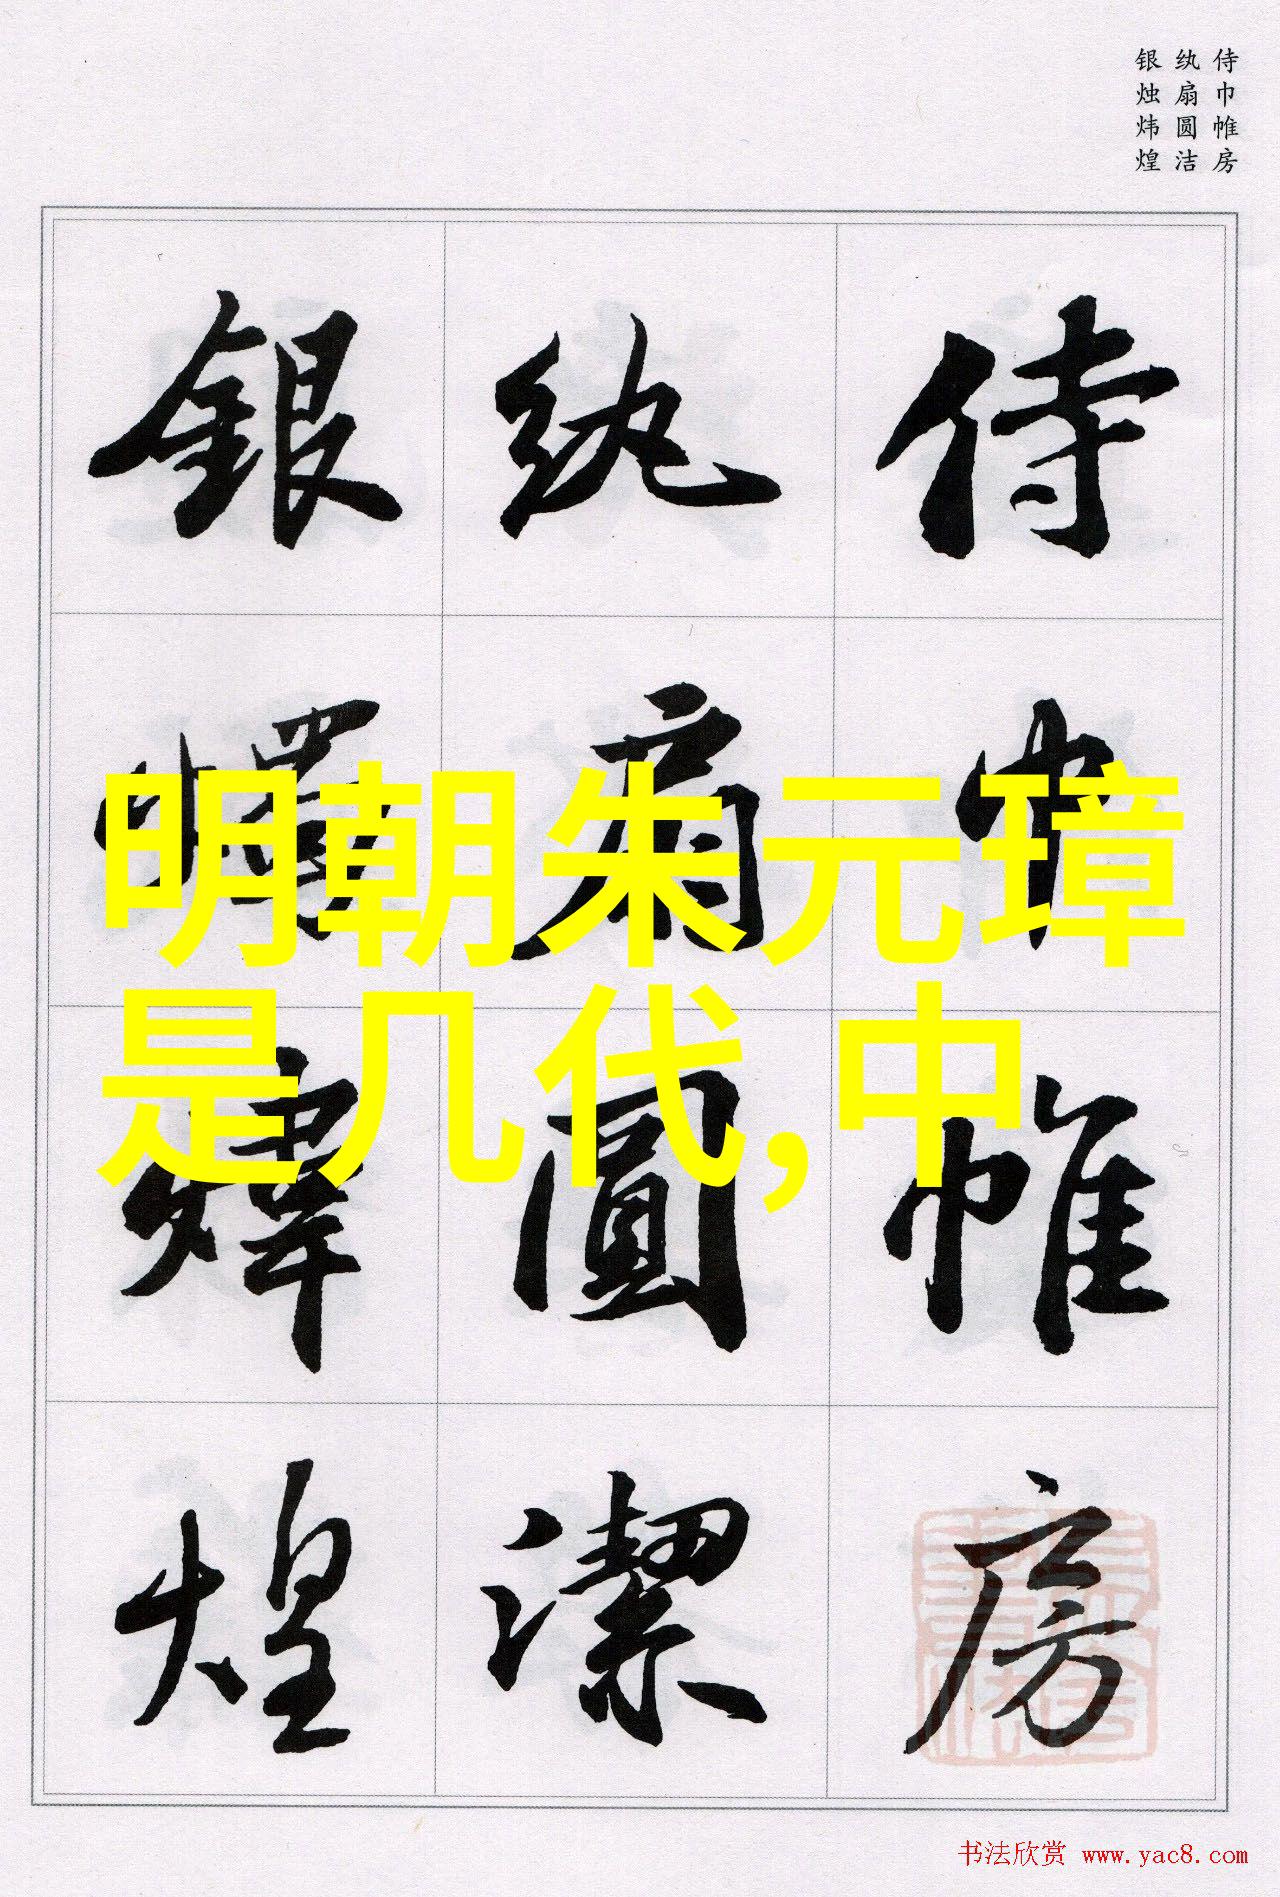 侍巾帷房
纨扇圆洁
银烛炜煌
侍巾帷房
纨扇圓潔
銀燭煒煌
明朝朱元璋
是几代,中
书法欣赏 www.yac8.com